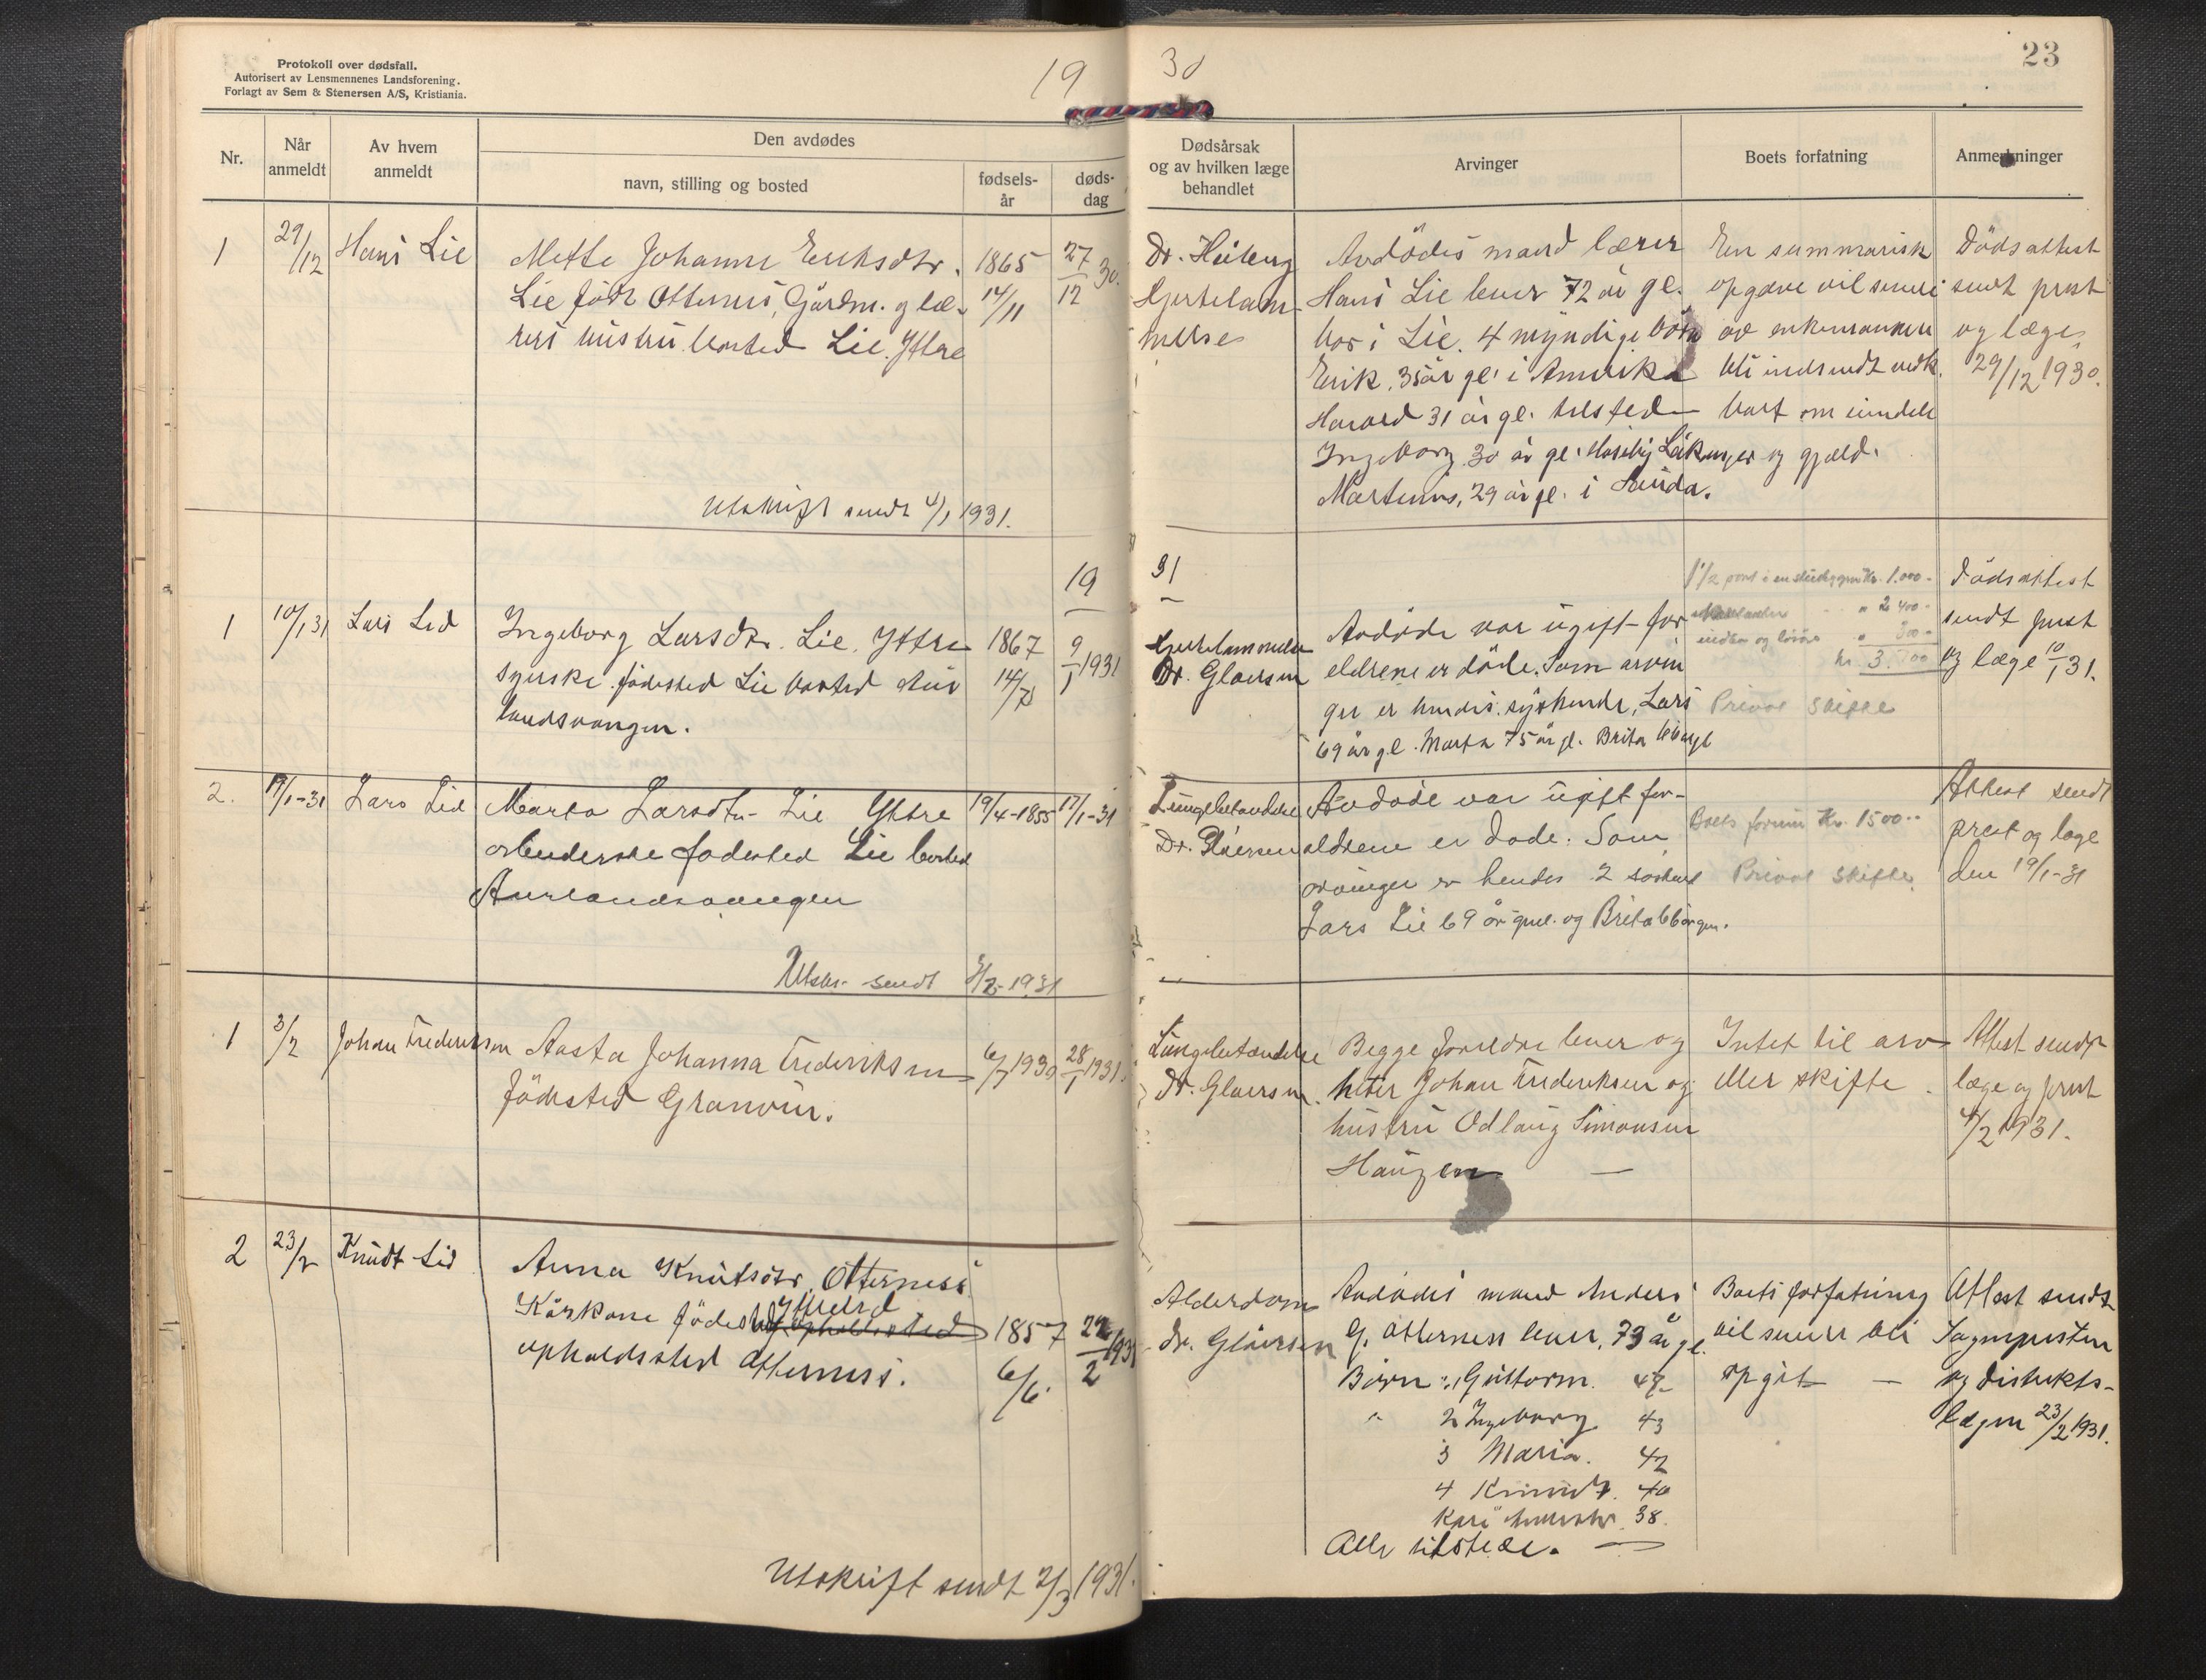 Protokoll over dødsfall.
Autorisert av Lensmennenes Landsforening.
Forlagt av Sem & Stenersen A/S, Kristiania.
19 30
23
Nr.
Når anmeldt
Av hvem anmeldt
Den avdødes
navn, stilling og bosted
fødsels-år
døds-dag
Dødsårsak og av hvilken læge behandlet
Arvinger
Boets forfatning
Anmerkninger
1
29/12
Hans Lie
Mette Johanne Eriksdtr.
Lie född Otternes, Gårdm. og læ-
rers hustru bosted Lie. Yttre
1865
14/11
27/12 30.
Dr. Heiberg
Hjertelam-
melse
Avdödes mand lærer
Hans Lie lever 72 år gl.
bor i Lie. 4 myndige börn
Erik. 35 år gl. i Amerika
Harald 31 år gl. tilsted
Ingeborg 30 år gl. Leikanger
Martinus, 29 år gl. i
En summarisk
opgave vil senere
av enkemannen
bli indsendt vedk.
bart om eiendele
og gjæld.
Dödsattest
sendt prest
og læge
29/12 1930.
Utskrift sendt 4/1 1931.
19 31
1
10/1 31
Lars Lid
Ingeborg Larsdtr. Lie. Yttre
syerske. födested Lie bosted Aur
landsvangen.
1867
14/7
9/1 1931
Hjertelammelse
Dr. Gloersen
Avdöde var ugift for
eldrene er döde. Som arvin
ger er hendes syskende, Lars
69 år gl. Marta 75 år gl. Brita 66 årgl
1 1/2 part i en kr. 1.000-
" 2 400-
indbo og lösöre " 300-
kr. 3.700
Privat skifte
Dödsattest
sendt prest
og læge 10/1 31.
2.
19/1-31
Lars Lie
Marta Larsdtr. Lie Yttre
arbeiderske födested Lie bosted
Aurlandsvangen
19/4-1855
17/1-31
Lungebetændelse
Dr. Gloersen
Avdöde var ugift for-
eldrene er döde. Som
arvinger er hendes 2 söskend
Lars Lie 69 år gml. og Brita 66 år gm.
Boets formue Kr. 1500--
Privat skifte.
Attest sendt
prest og læge
den 19/1-31
Utskr. sendt 3/2-1931
1
3/2
Johan Frederiksen
Aasta Johanna Frederiksen
födested Granvin.
6/7 1930
28/1 1931.
Lungebetændelse
Dr. Gloersen.
Begge foreldre lever og
heter Johan Frederiksen og
hustru Odlaug Simonsen
Haugen —
Intet til arv
eller skifte.
Attest sendt
læge og prest
4/2 1931.
2
23/2
Knudt Lid
Anna Knutsdtr. Otterness
Kårkone födested Yttrelid
opholdssted Otterness.
1857
6/6.
22/2 1931
Alderdom
Dr. Gloersen
Avdödes mand Anders
G. Otterness lever, 73 år gl.
Börn: 1 Guttorm. 47
" 2 Ingeborg 43
3 Maria. 42
4 Knudt. 40
Kari 38.
Alle tilstede. —
Boets forfatning
vil senere bli
opgit —
Attest sendt
Sognepresten
og distrikts-
lægen 23/2 1931.
Utskrift sendt 2/3 1931.